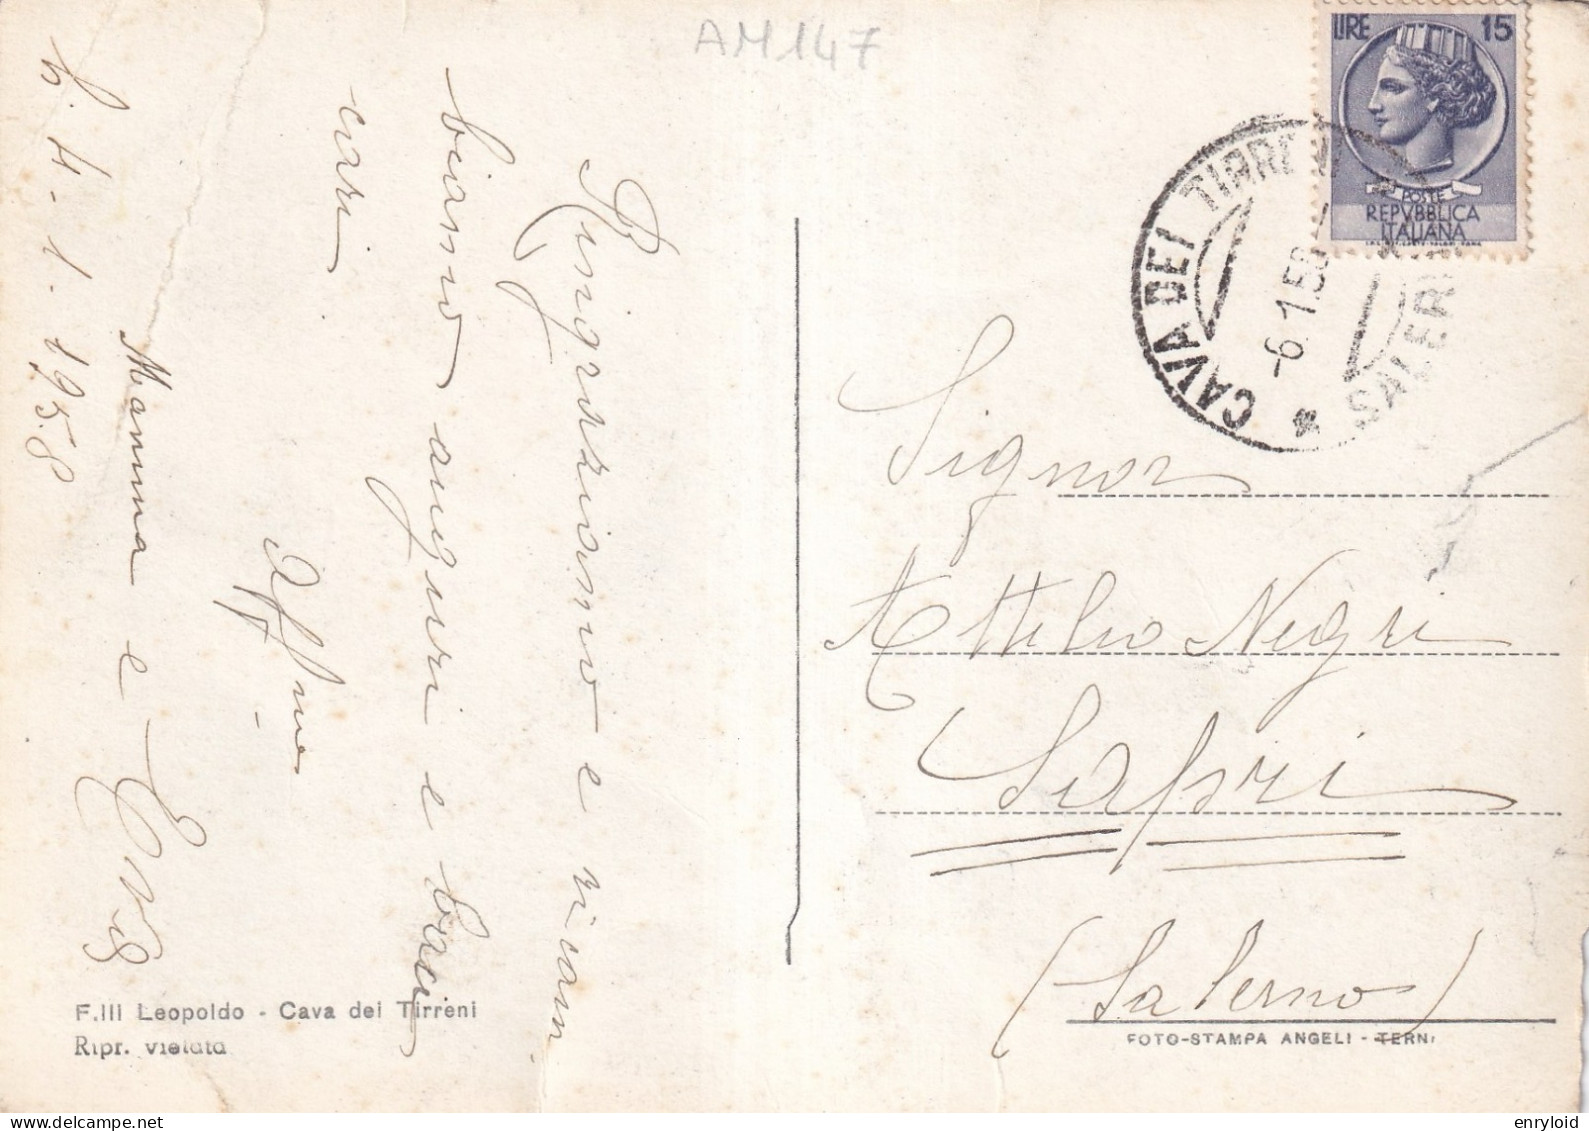 AM147
LIRE 15
POSTE
REPVBBLICA
ITALIANA
CAVA DEI TIRRENI
SALERNO
-6.1.58
C. 4-1-1958
Ringraziamo e ricam
biamo auguri e baci
cari
Aff/mo
Mamma e
Signor
Attilio Negri
Sapri
(Salerno)
F.lli Leopoldo - Cava dei Tirreni
Ripr. vietata
FOTO-STAMPA ANGELI - TERNI